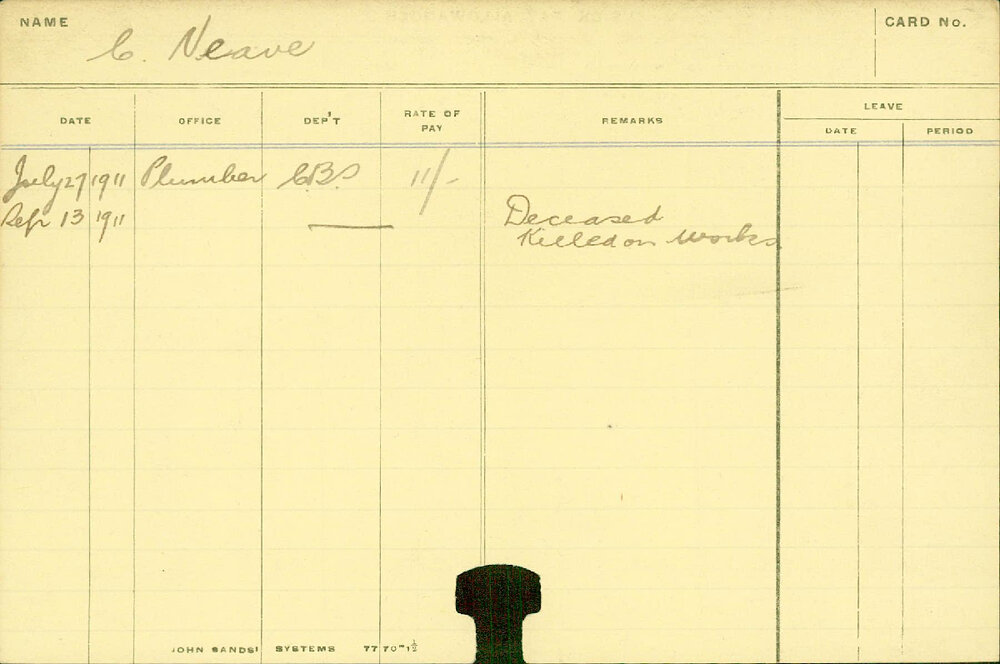 NAME C. Neave CARD No.
LEAVE
DATE OFFICE DEP'T RATE OF PAY REMARKS DATE PERIOD
July 27 1911 Plumber C.B.S 11/-
Sept 13 1911 Deceased
Killed on Works
JOHN SANDS' SYSTEMS 7770"1½